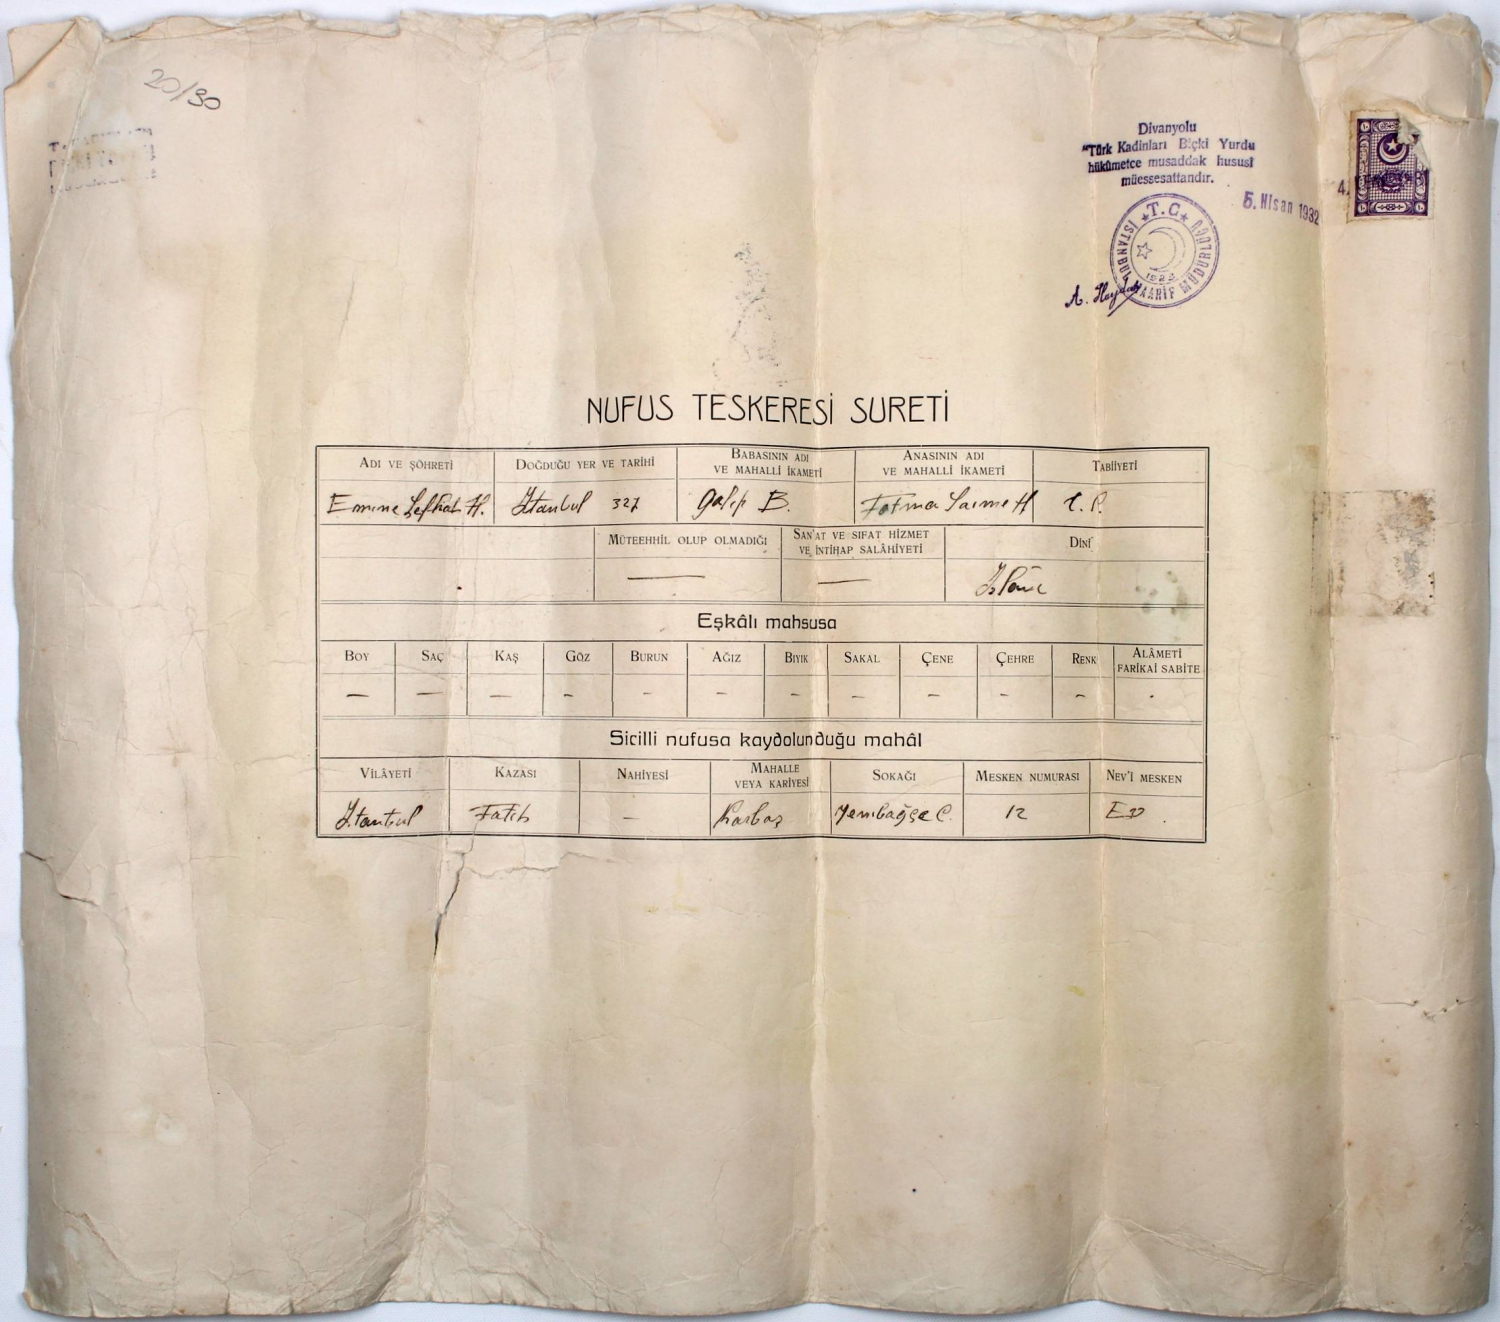 20/30
Divanyolu
"Türk Kadınları Biçki Yurdu
hükûmetce musaddak hususî
müessesattandır.
5. Nisan 1932
★ T. C ★
İSTANBUL MAARİF MÜDÜRLÜĞÜ
A. Haydar
NUFUS TESKERESİ SURETİ
ADI VE ŞÖHRETİ DOĞDUĞU YER VE TARİHİ BABASININ ADI VE MAHALLİ İKAMETİ ANASININ ADI VE MAHALLİ İKAMETİ TABİİYETİ
Emine H. İstanbul 327 Galip B. Fatma Saime H T. C.
MÜTEEHHİL OLUP OLMADIĞI SAN'AT VE SIFAT HİZMET VE İNTİHAP SALÂHİYETİ DİNİ
— — İslâm
Eşkâlı mahsusa
BOY SAÇ KAŞ GÖZ BURUN AĞIZ BIYIK SAKAL ÇENE ÇEHRE RENK ALÂMETİ FARİKAİ SABİTE
— — — - - - - - - - -
Sicilli nufusa kaydolunduğu mahâl
VİLÂYETİ KAZASI NAHİYESİ MAHALLE VEYA KARİYESİ SOKAĞI MESKEN NUMURASI NEV'İ MESKEN
İstanbul Fatih — Yenibağçe C. 12 Ev